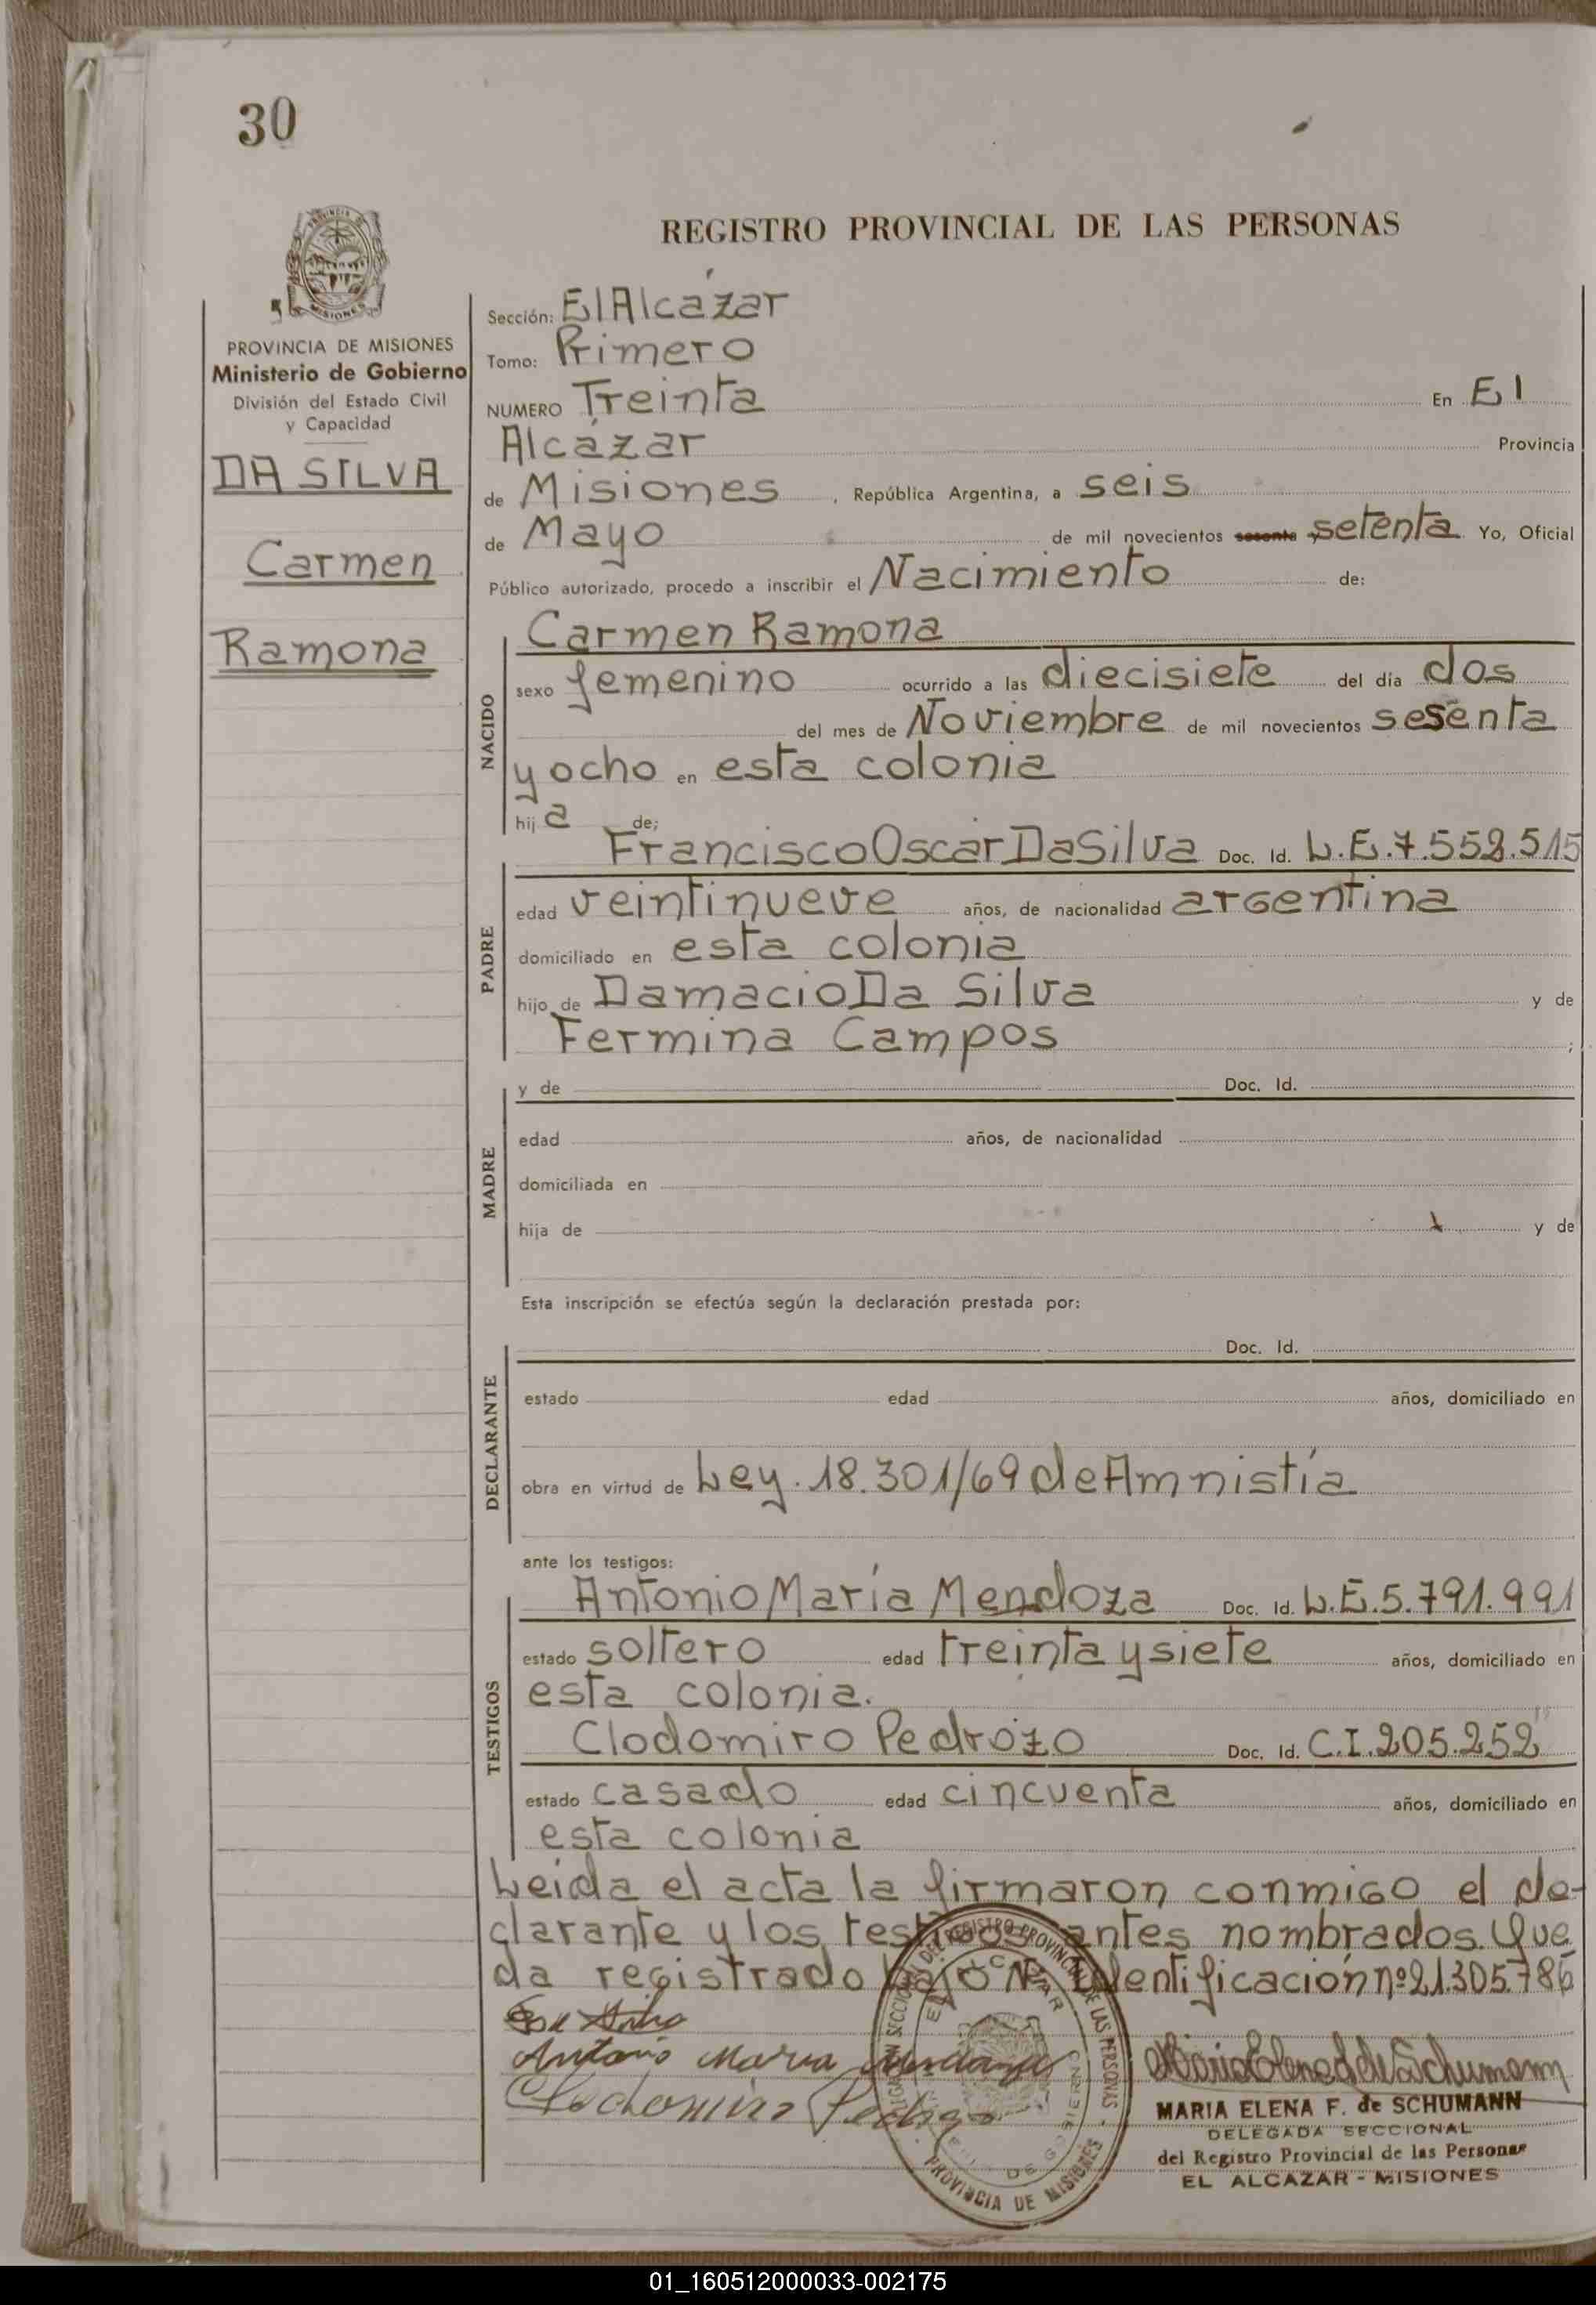 30
REGISTRO PROVINCIAL DE LAS PERSONAS
PROVINCIA DE MISIONES
Ministerio de Gobierno
División del Estado Civil
y Capacidad
DA SILVA
Carmen
Ramona
Sección: El Alcázar
Tomo: Primero
NUMERO Treinta En El
Alcázar Provincia
de Misiones , República Argentina, a seis
de Mayo de mil novecientos sesenta setenta Yo, Oficial
Público autorizado, procedo a inscribir el Nacimiento de:
NACIDO
Carmen Ramona
sexo femenino ocurrido a las diecisiete del día dos
del mes de Noviembre de mil novecientos sesenta
y ocho en esta colonia
hij a de;
PADRE
Francisco Oscar Da Silva Doc. Id. L.E. 7.558.515
edad veintinueve años, de nacionalidad argentina
domiciliado en esta colonia
hijo de Damacio Da Silva y de
Fermina Campos ;
MADRE
y de Doc. Id.
edad años, de nacionalidad
domiciliada en
hija de y de
Esta inscripción se efectúa según la declaración prestada por:
DECLARANTE
Doc. Id.
estado edad años, domiciliado en
obra en virtud de Ley. 18.301/69 de Amnistía
ante los testigos:
TESTIGOS
Antonio María Mendoza Doc. Id. L.E. 5.791.991
estado soltero edad treinta y siete años, domiciliado en
esta colonia.
Clodomiro Pedrozo Doc. Id. C.I. 205.252
estado casado edad cincuenta años, domiciliado en
esta colonia
Leida el acta la firmaron conmigo el de-
clarante y los testigos antes nombrados. Que
da registrado bajo Nº Identificación nº 21.305.786
Antonio Maria Mendoza
Clodomiro Pedrozo
MARIA ELENA F. de SCHUMANN
DELEGADA SECCIONAL
del Registro Provincial de las Personas
EL ALCAZAR - MISIONES
PROVINCIA DE MISIONES
01_160512000033-002175